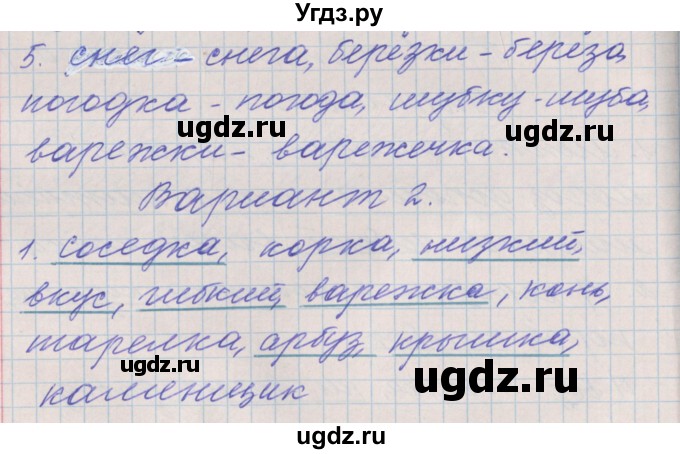 Угдз.ру
5. снег - снега, берёзки - берёза,
погодка - погода, шубку - шуба,
ugdz.ru ugdz.ru
варежки - варежечка.
Вариант 2.
1. соседка, корка, низкий,
вкус, гибкий, варежка, конь,
ugdz.ru
тарелка, арбуз, крышка,
ugdz.ru
каменщик
ugdz.ru